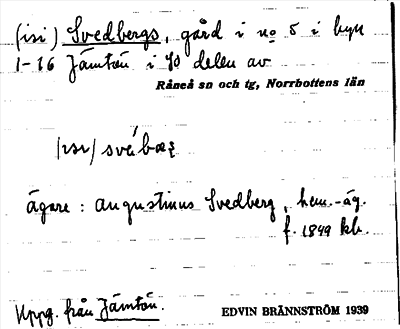 (isi) Svedbergs, gård i no 5 i byn
1-16 Jämtön i SO delen av
Råneå sn och tg, Norrbottens län
ägare: Augustinus Svedberg, hem.-äg.
f. 1849 kb.
Uppg. från Jämtön.
EDVIN BRÄNNSTRÖM 1939